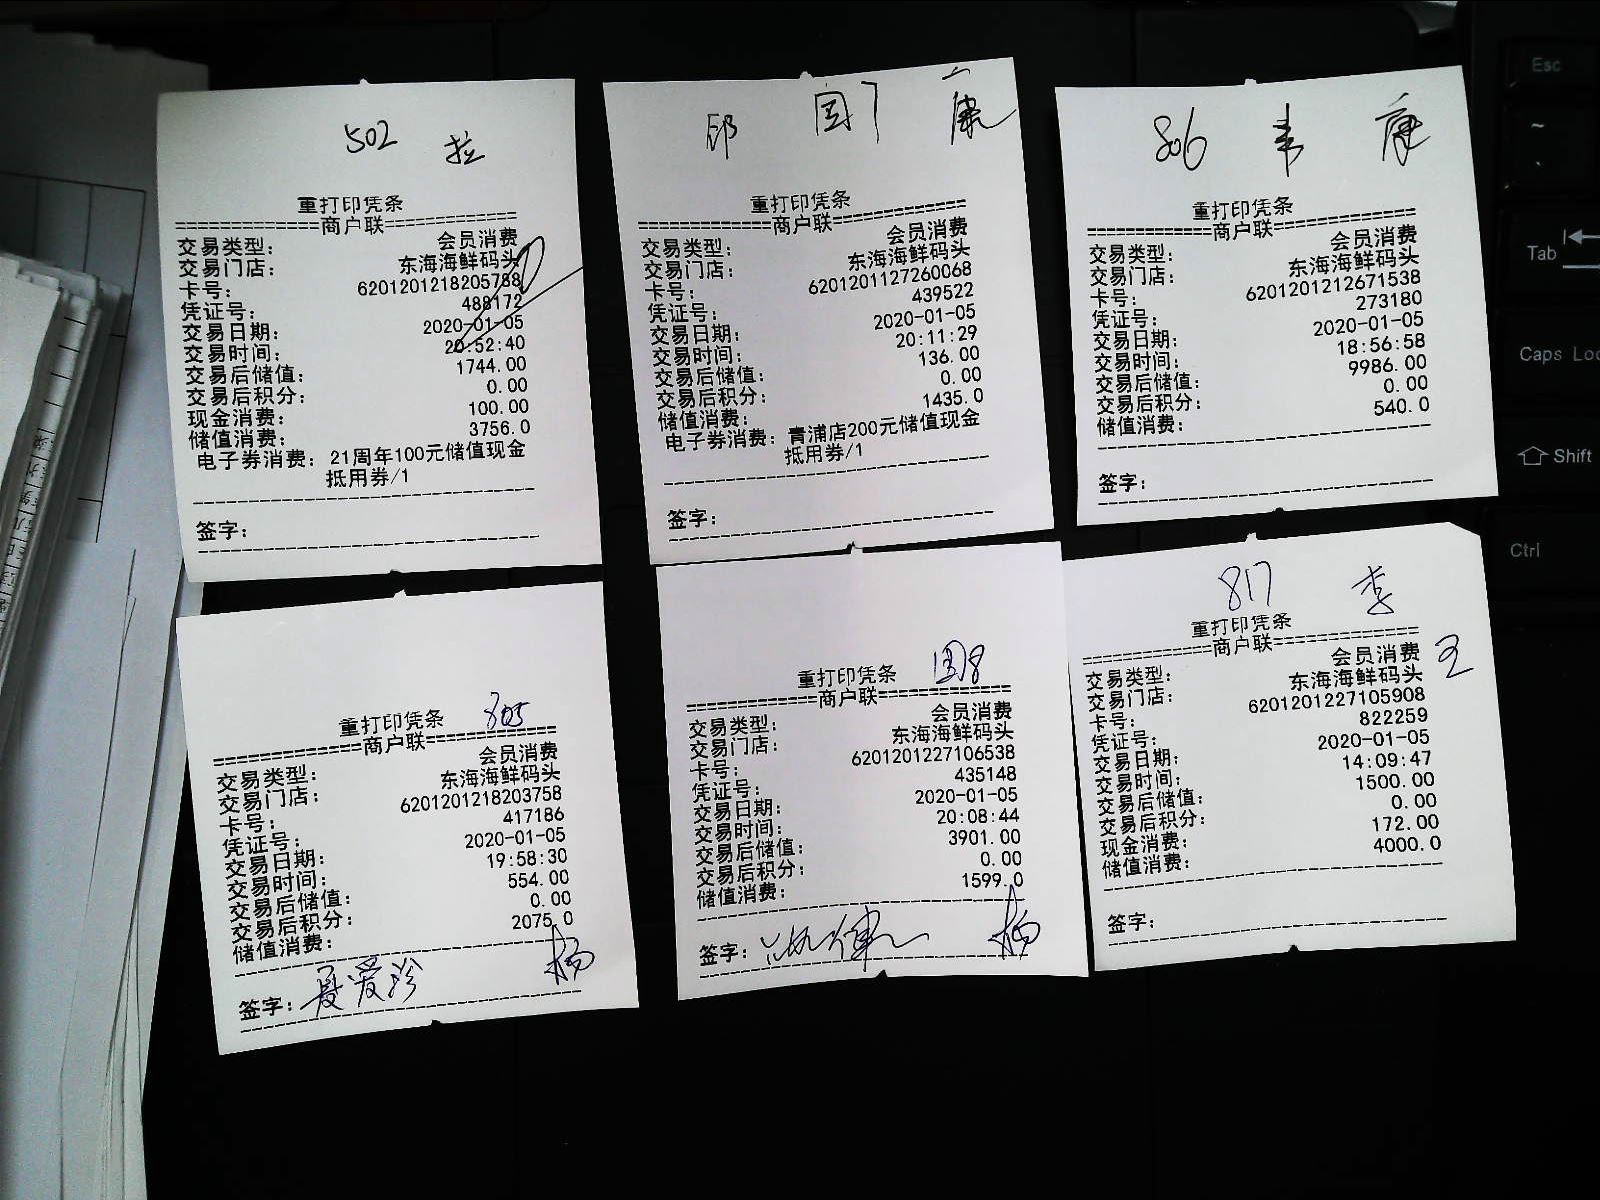 502 拉
重打印凭条
============商户联============
交易类型： 会员消费
交易门店： 东海海鲜码头
卡号： 6201201218205788
凭证号： 488172
交易日期： 2020-01-05
交易时间： 20:52:40
交易后储值： 1744.00
交易后积分： 0.00
现金消费： 100.00
储值消费： 3756.0
电子券消费： 21周年100元储值现金
抵用券/1
签字：
邱 国7 康
重打印凭条
============商户联============
交易类型： 会员消费
交易门店： 东海海鲜码头
卡号： 6201201127260068
凭证号： 439522
交易日期： 2020-01-05
交易时间： 20:11:29
交易后储值： 136.00
交易后积分： 0.00
储值消费： 1435.0
电子券消费： 青浦店200元储值现金
抵用券/1
签字：
806 韦 康
重打印凭条
============商户联============
交易类型： 会员消费
交易门店： 东海海鲜码头
卡号： 6201201212671538
凭证号： 273180
交易日期： 2020-01-05
交易时间： 18:56:58
交易后储值： 9986.00
交易后积分： 0.00
储值消费： 540.0
签字：
重打印凭条 805
============商户联============
交易类型： 会员消费
交易门店： 东海海鲜码头
卡号： 6201201218203758
凭证号： 417186
交易日期： 2020-01-05
交易时间： 19:58:30
交易后储值： 554.00
交易后积分： 0.00
储值消费： 2075.0
签字：夏爱珍 杨
重打印凭条 国8
============商户联============
交易类型： 会员消费
交易门店： 东海海鲜码头
卡号： 6201201227106538
凭证号： 435148
交易日期： 2020-01-05
交易时间： 20:08:44
交易后储值： 3901.00
交易后积分： 0.00
储值消费： 1599.0
签字： 杨
817 李
重打印凭条
============商户联============
交易类型： 会员消费 王
交易门店： 东海海鲜码头
卡号： 6201201227105908
凭证号： 822259
交易日期： 2020-01-05
交易时间： 14:09:47
交易后储值： 1500.00
交易后积分： 0.00
现金消费： 172.00
储值消费： 4000.0
签字：
Esc
~
Tab
Caps Loc
Shift
Ctrl